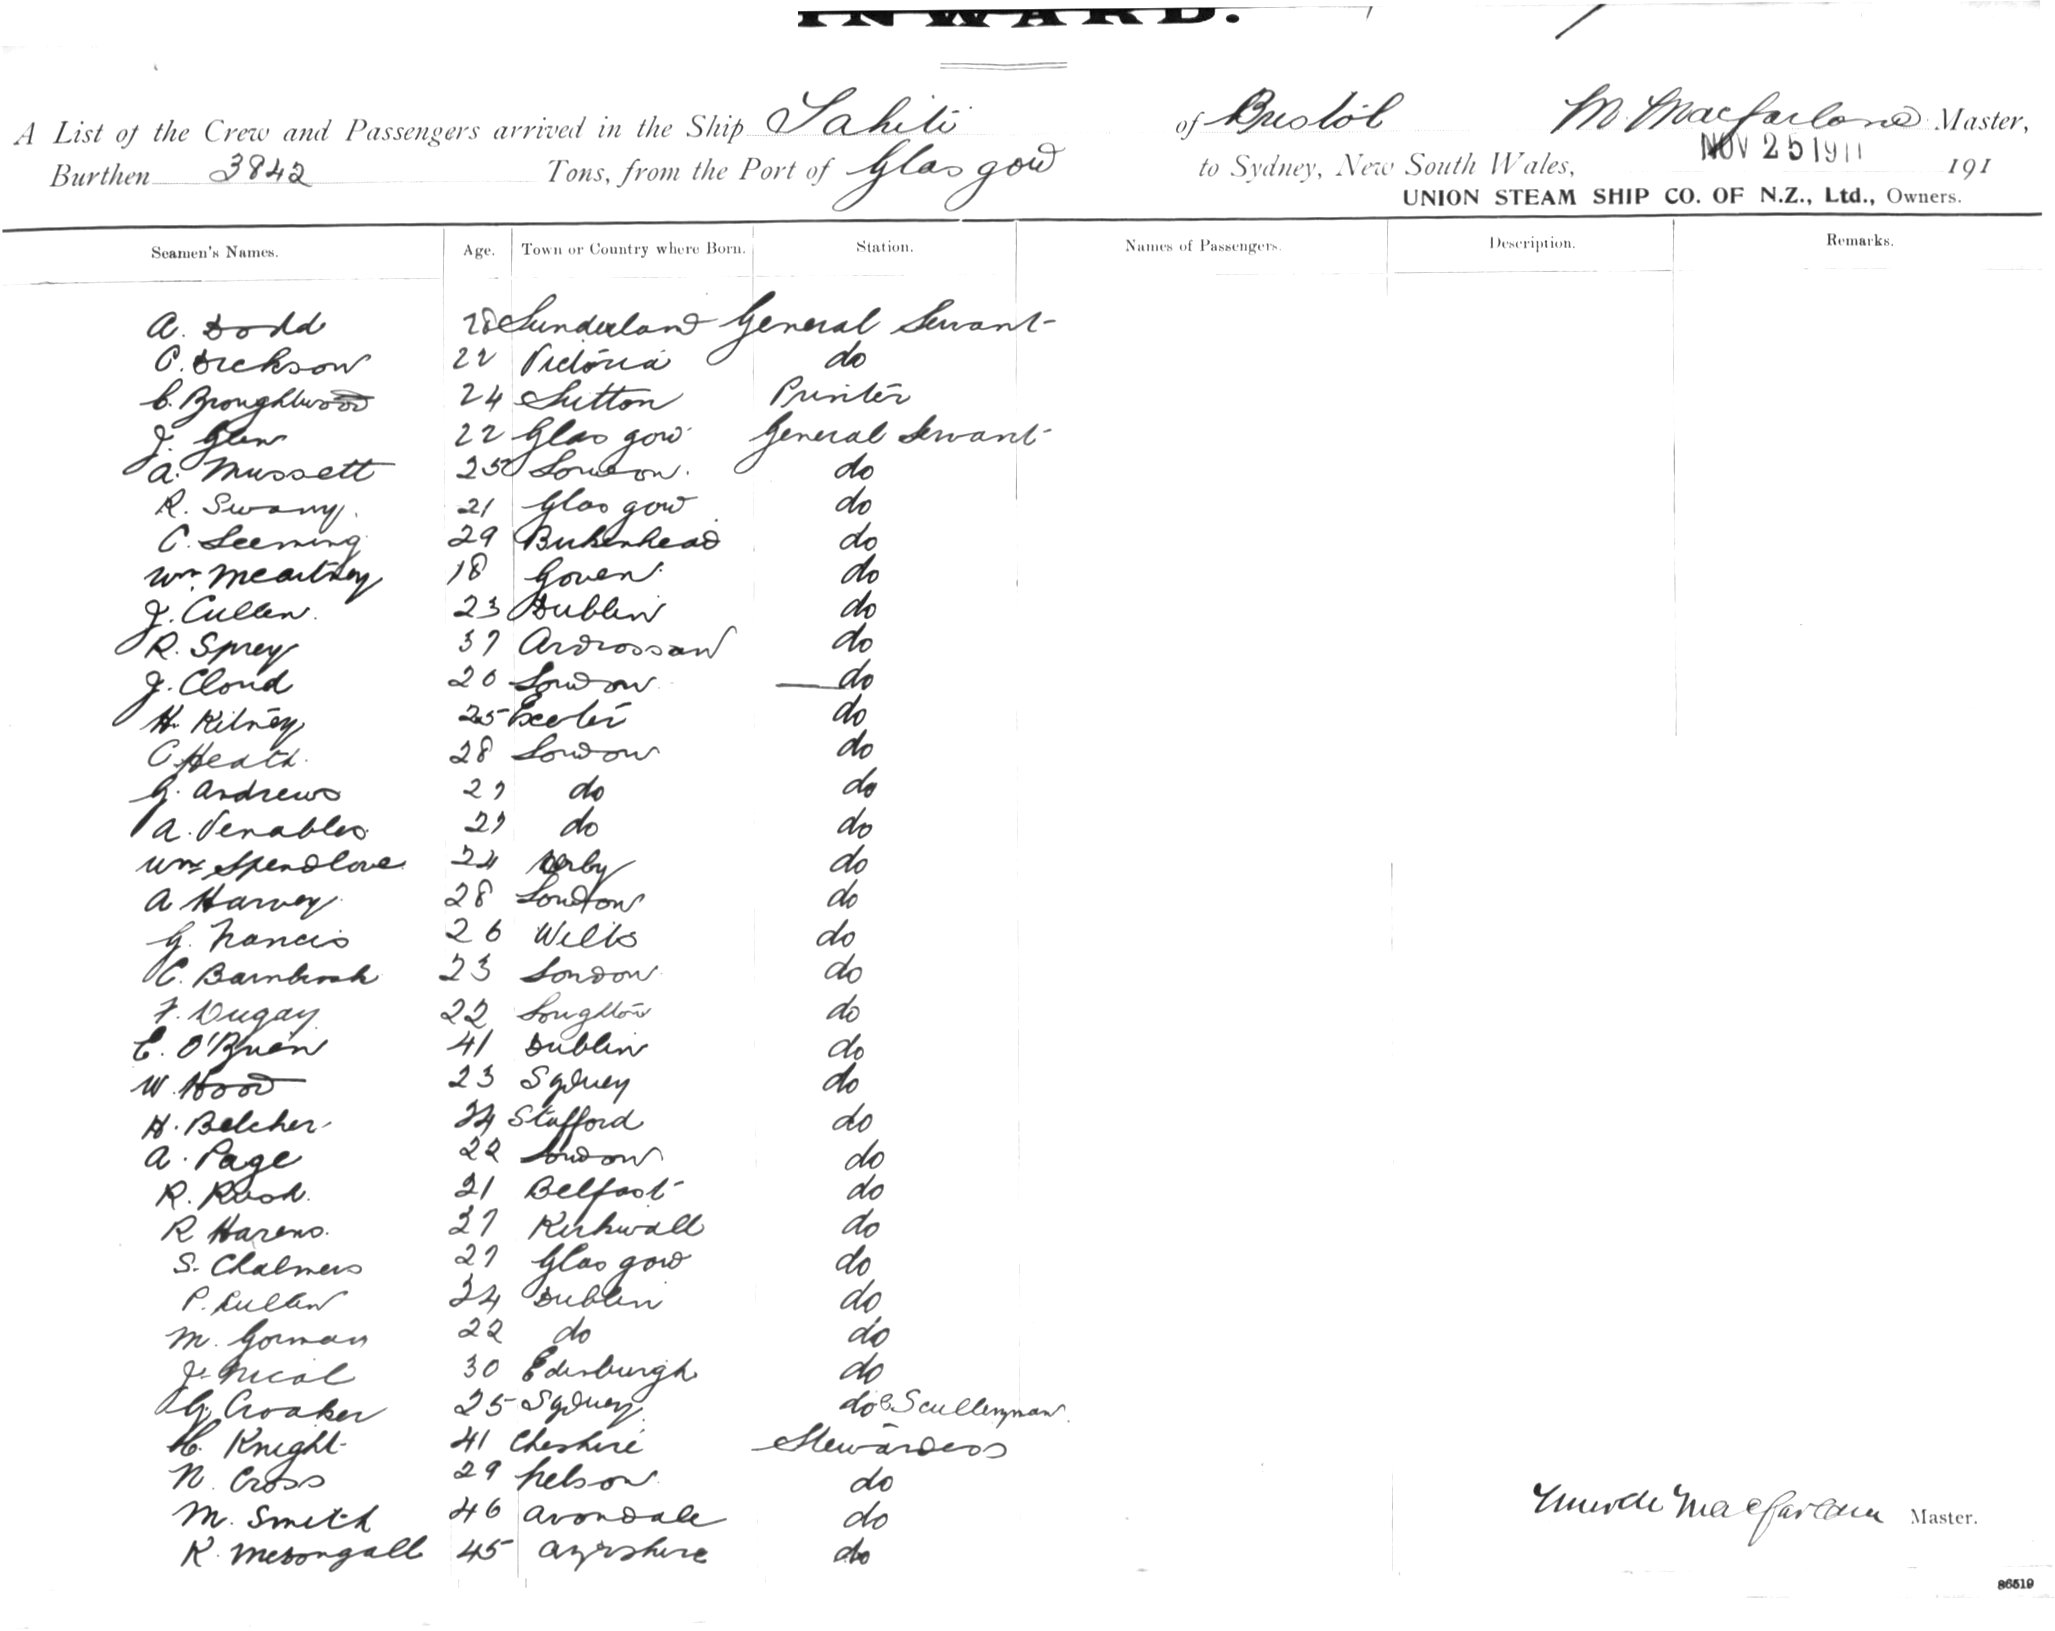 INWARD.
A List of the Crew and Passengers arrived in the Ship Tahiti of Bristol M. Macfarlane Master,
Burthen 3842 Tons, from the Port of Glasgow to Sydney, New South Wales, NOV 25 1911 191
UNION STEAM SHIP CO. OF N.Z., Ltd., Owners.
Seamen's Names. Age. Town or Country where Born. Station. Names of Passengers. Description. Remarks.
A. Dodd 28 Sunderland General Servant
C. Dickson 22 Victoria do
C. Broughtwood 24 Sutton Printer
J. Glen 22 Glasgow General Servant
A. Mussett 25 London. do
R. Swany. 21 Glasgow do
C. Leeming 29 Birkenhead do
Wm. McCartney 18 Goven do
J. Cullen. 23 Dublin do
R. Sprey 37 Ardrossan do
J. Cloud 26 London do
H. Kitney 25 Exeter do
C Heath. 28 London do
G. Andrews 27 do do
A. Venables 27 do do
Wm. Spendlove 24 Derby do
A Harvey 28 London do
G. Francis 26 Wells do
C. Barnbrook 23 London do
F. Dugay 22 Loughton do
E. O'Brien 41 Dublin do
W. Hood 23 Sydney do
H. Belcher 24 Stafford do
A. Page 22 London do
R. Rush. 21 Belfast do
R Harens. 27 Kirkwall do
S. Chalmers 27 Glasgow do
P. Cullen 24 Dublin do
M. Gorman 22 do do
J. Nicol 30 Edinburgh do
G. Croaker 25 Sydney do & Sculleryman
H. Knight 41 Cheshire Stewardess
N. Cross 29 Nelson do
M. Smith 46 Avondale do
K. McDongall 45 Ayrshire do
Murdo Macfarlane Master.
86519